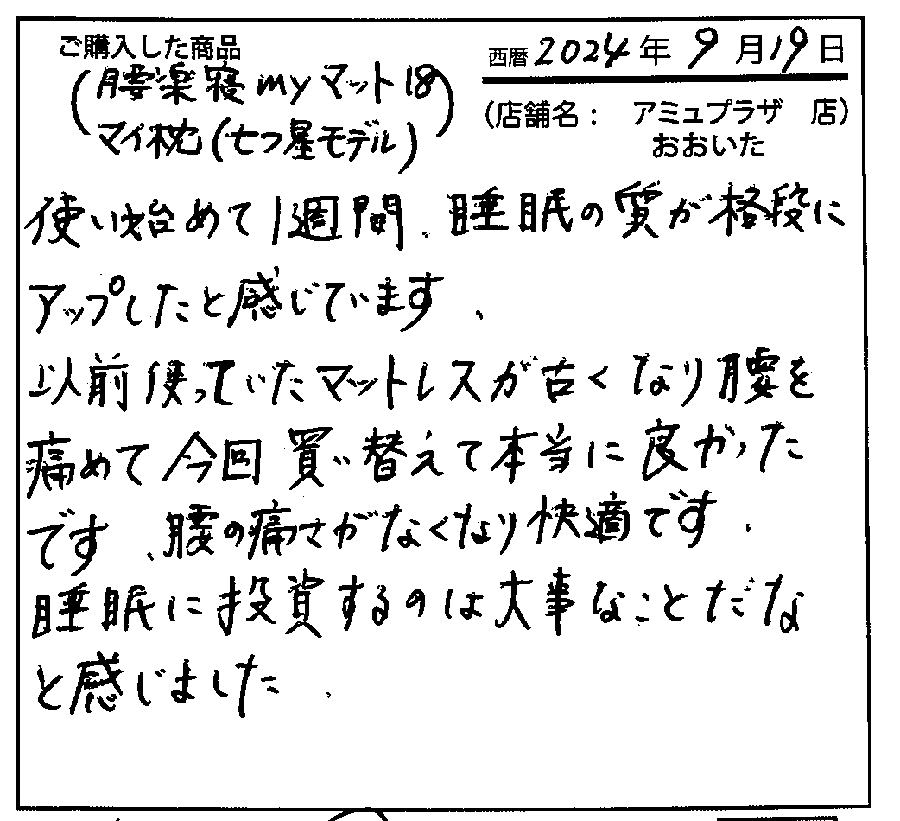 ご購入した商品
西暦 2024 年 9 月 19 日
(腰楽寝 myマット18
マイ枕(七つ星モデル))
(店舗名: アミュプラザ 店)
おおいた
使い始めて1週間、睡眠の質が格段に
アップしたと感じています、
以前使っていたマットレスが古くなり腰を
痛めて今回買い替えて本当に良かった
です、腰の痛さがなくなり快適です、
睡眠に投資するのは大事なことだな
と感じました、